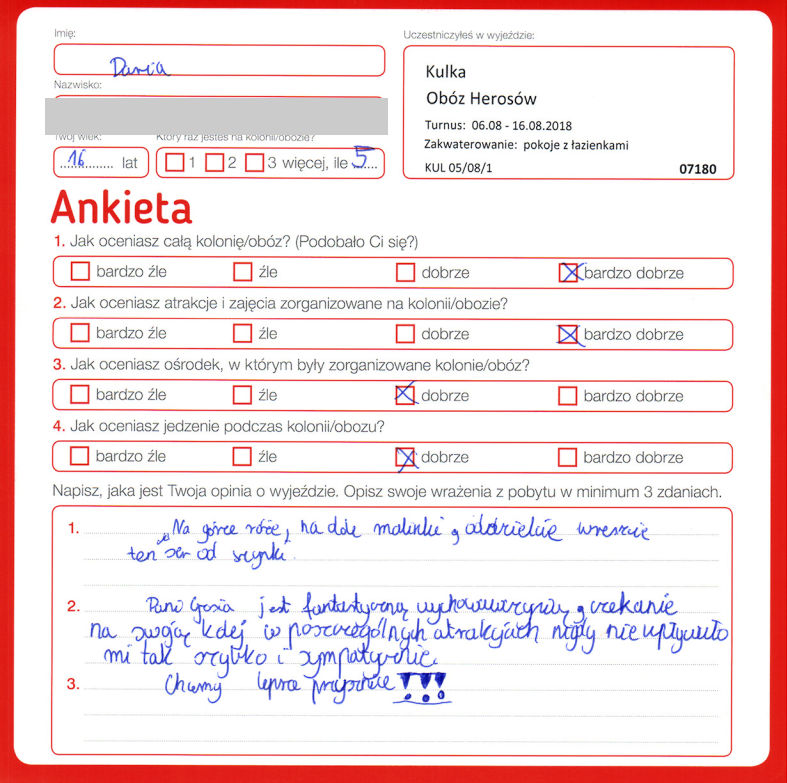 Imię:
Daria
Nazwisko:
Twój wiek:
Który raz jesteś na kolonii/obozie?
16 lat
1 2 3 więcej, ile 5
Uczestniczyłeś w wyjeździe:
Kulka
Obóz Herosów
Turnus: 06.08 - 16.08.2018
Zakwaterowanie: pokoje z łazienkami
KUL 05/08/1 07180
Ankieta
1. Jak oceniasz całą kolonię/obóz? (Podobało Ci się?)
bardzo źle źle dobrze bardzo dobrze
2. Jak oceniasz atrakcje i zajęcia zorganizowane na kolonii/obozie?
bardzo źle źle dobrze bardzo dobrze
3. Jak oceniasz ośrodek, w którym były zorganizowane kolonie/obóz?
bardzo źle źle dobrze bardzo dobrze
4. Jak oceniasz jedzenie podczas kolonii/obozu?
bardzo źle źle dobrze bardzo dobrze
Napisz, jaka jest Twoja opinia o wyjeździe. Opisz swoje wrażenia z pobytu w minimum 3 zdaniach.
1. „Na górze róże, na dole malinki, oddzielcie wreszcie
ten ser od szynki.
2. Pani Gosia jest fantastyczną wychowawczynią, czekanie
na swoją kolej w poszczególnych atrakcjach nigdy nie upływało
mi tak szybko i sympatycznie.
3. Chcemy lepsze prysznice !!!